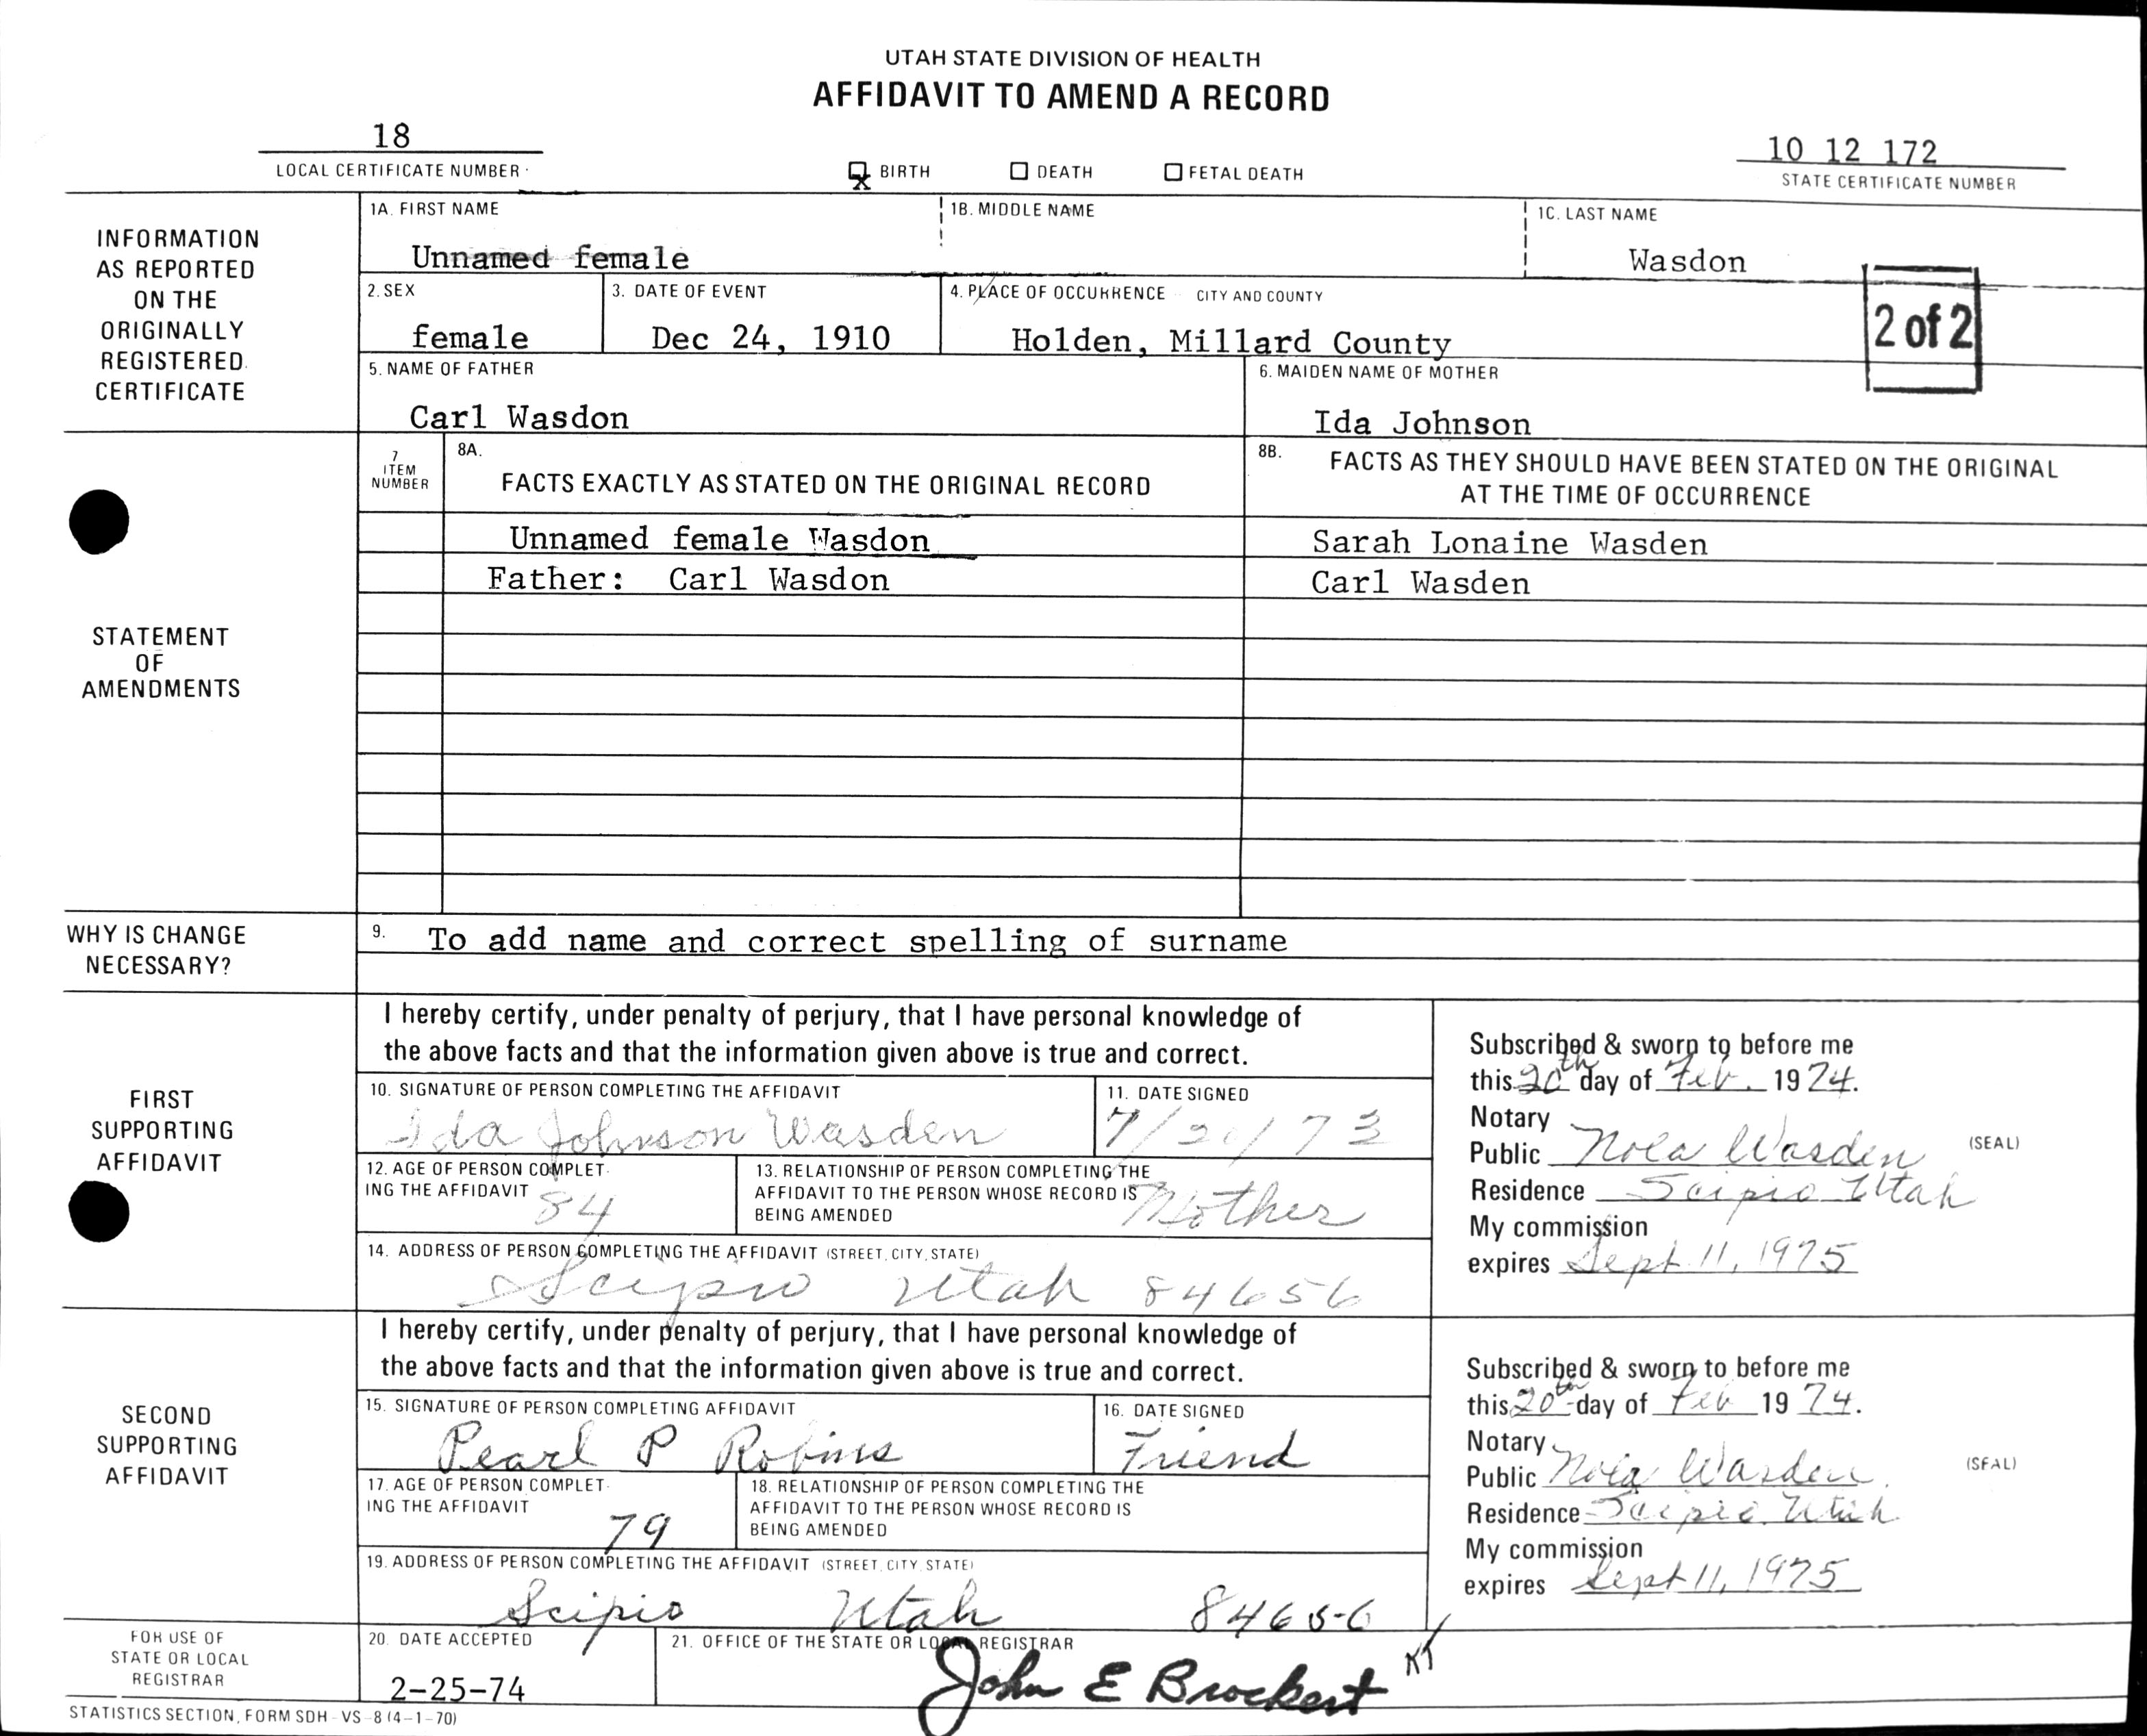 UTAH STATE DIVISION OF HEALTH
AFFIDAVIT TO AMEND A RECORD
18
LOCAL CERTIFICATE NUMBER
X BIRTH DEATH FETAL DEATH
10 12 172
STATE CERTIFICATE NUMBER
INFORMATION
AS REPORTED
ON THE
ORIGINALLY
REGISTERED
CERTIFICATE
1A. FIRST NAME
Unnamed female
1B. MIDDLE NAME
1C. LAST NAME
Wasdon
2. SEX
female
3. DATE OF EVENT
Dec 24, 1910
4. PLACE OF OCCURRENCE CITY AND COUNTY
Holden, Millard County
2 of 2
5. NAME OF FATHER
Carl Wasdon
6. MAIDEN NAME OF MOTHER
Ida Johnson
STATEMENT
OF
AMENDMENTS
7
ITEM
NUMBER
8A.
FACTS EXACTLY AS STATED ON THE ORIGINAL RECORD
8B. FACTS AS THEY SHOULD HAVE BEEN STATED ON THE ORIGINAL
AT THE TIME OF OCCURRENCE
Unnamed female Wasdon
Sarah Lonaine Wasden
Father: Carl Wasdon
Carl Wasden
WHY IS CHANGE
NECESSARY?
9. To add name and correct spelling of surname
FIRST
SUPPORTING
AFFIDAVIT
I hereby certify, under penalty of perjury, that I have personal knowledge of
the above facts and that the information given above is true and correct.
10. SIGNATURE OF PERSON COMPLETING THE AFFIDAVIT
Ida Johnson Wasden
11. DATE SIGNED
7/20/73
12. AGE OF PERSON COMPLET-
ING THE AFFIDAVIT
84
13. RELATIONSHIP OF PERSON COMPLETING THE
AFFIDAVIT TO THE PERSON WHOSE RECORD IS
BEING AMENDED
Mother
14. ADDRESS OF PERSON COMPLETING THE AFFIDAVIT (STREET, CITY, STATE)
Scipio Utah 84656
Subscribed & sworn to before me
this 20th day of Feb. 1974.
Notary
Public Nola Wasden (SEAL)
Residence Scipio Utah
My commission
expires Sept 11, 1975
SECOND
SUPPORTING
AFFIDAVIT
I hereby certify, under penalty of perjury, that I have personal knowledge of
the above facts and that the information given above is true and correct.
15. SIGNATURE OF PERSON COMPLETING AFFIDAVIT
Pearl P Robins
16. DATE SIGNED
Friend
17. AGE OF PERSON COMPLET-
ING THE AFFIDAVIT
79
18. RELATIONSHIP OF PERSON COMPLETING THE
AFFIDAVIT TO THE PERSON WHOSE RECORD IS
BEING AMENDED
19. ADDRESS OF PERSON COMPLETING THE AFFIDAVIT (STREET, CITY, STATE)
Scipio Utah 84656
Subscribed & sworn to before me
this 20th day of Feb 1974.
Notary
Public Nola Wasden (SEAL)
Residence Scipio Utah
My commission
expires Sept 11, 1975
FOR USE OF
STATE OR LOCAL
REGISTRAR
20. DATE ACCEPTED
2-25-74
21. OFFICE OF THE STATE OR LOCAL REGISTRAR
John E Brockert KT
STATISTICS SECTION, FORM SDH-VS-8 (4-1-70)